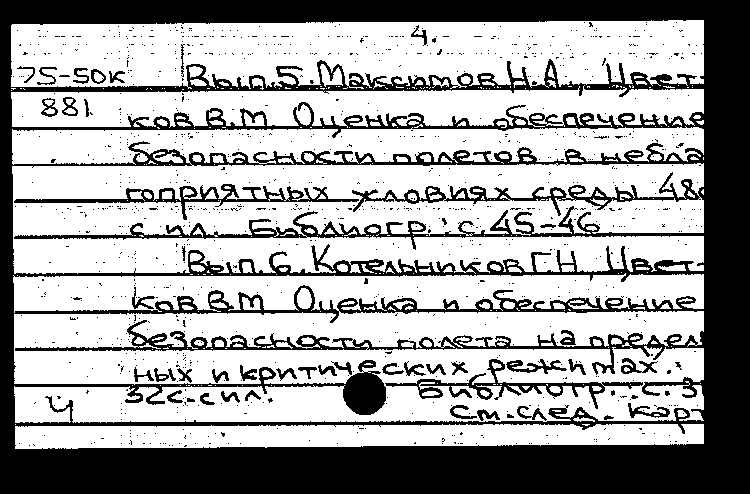 4.
75-50к Вып.5. Максимов Н.А., Цвет-
881 ков В.М Оценка и обеспечение
безопасности полетов в небла
гоприятных условиях среды 48с
с ил. Библиогр.: с.45-46
Вып.6. Котельников Г.Н, Цвет-
ков В.М Оценка и обеспечение
безопасности полета на предель
ных и критических режимах.
32с. с ил. Библиогр.: с. 3
Ч См. след. карт